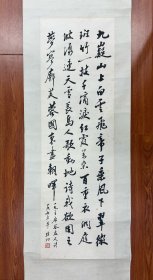 九嶷山上白雲飛帝子乘風下翠微
斑竹一枝千滴淚紅霞萬朵百重衣洞庭
波涌連天雪長島人歌動地詩我欲因之
夢寥廓芙蓉國裏盡朝暉